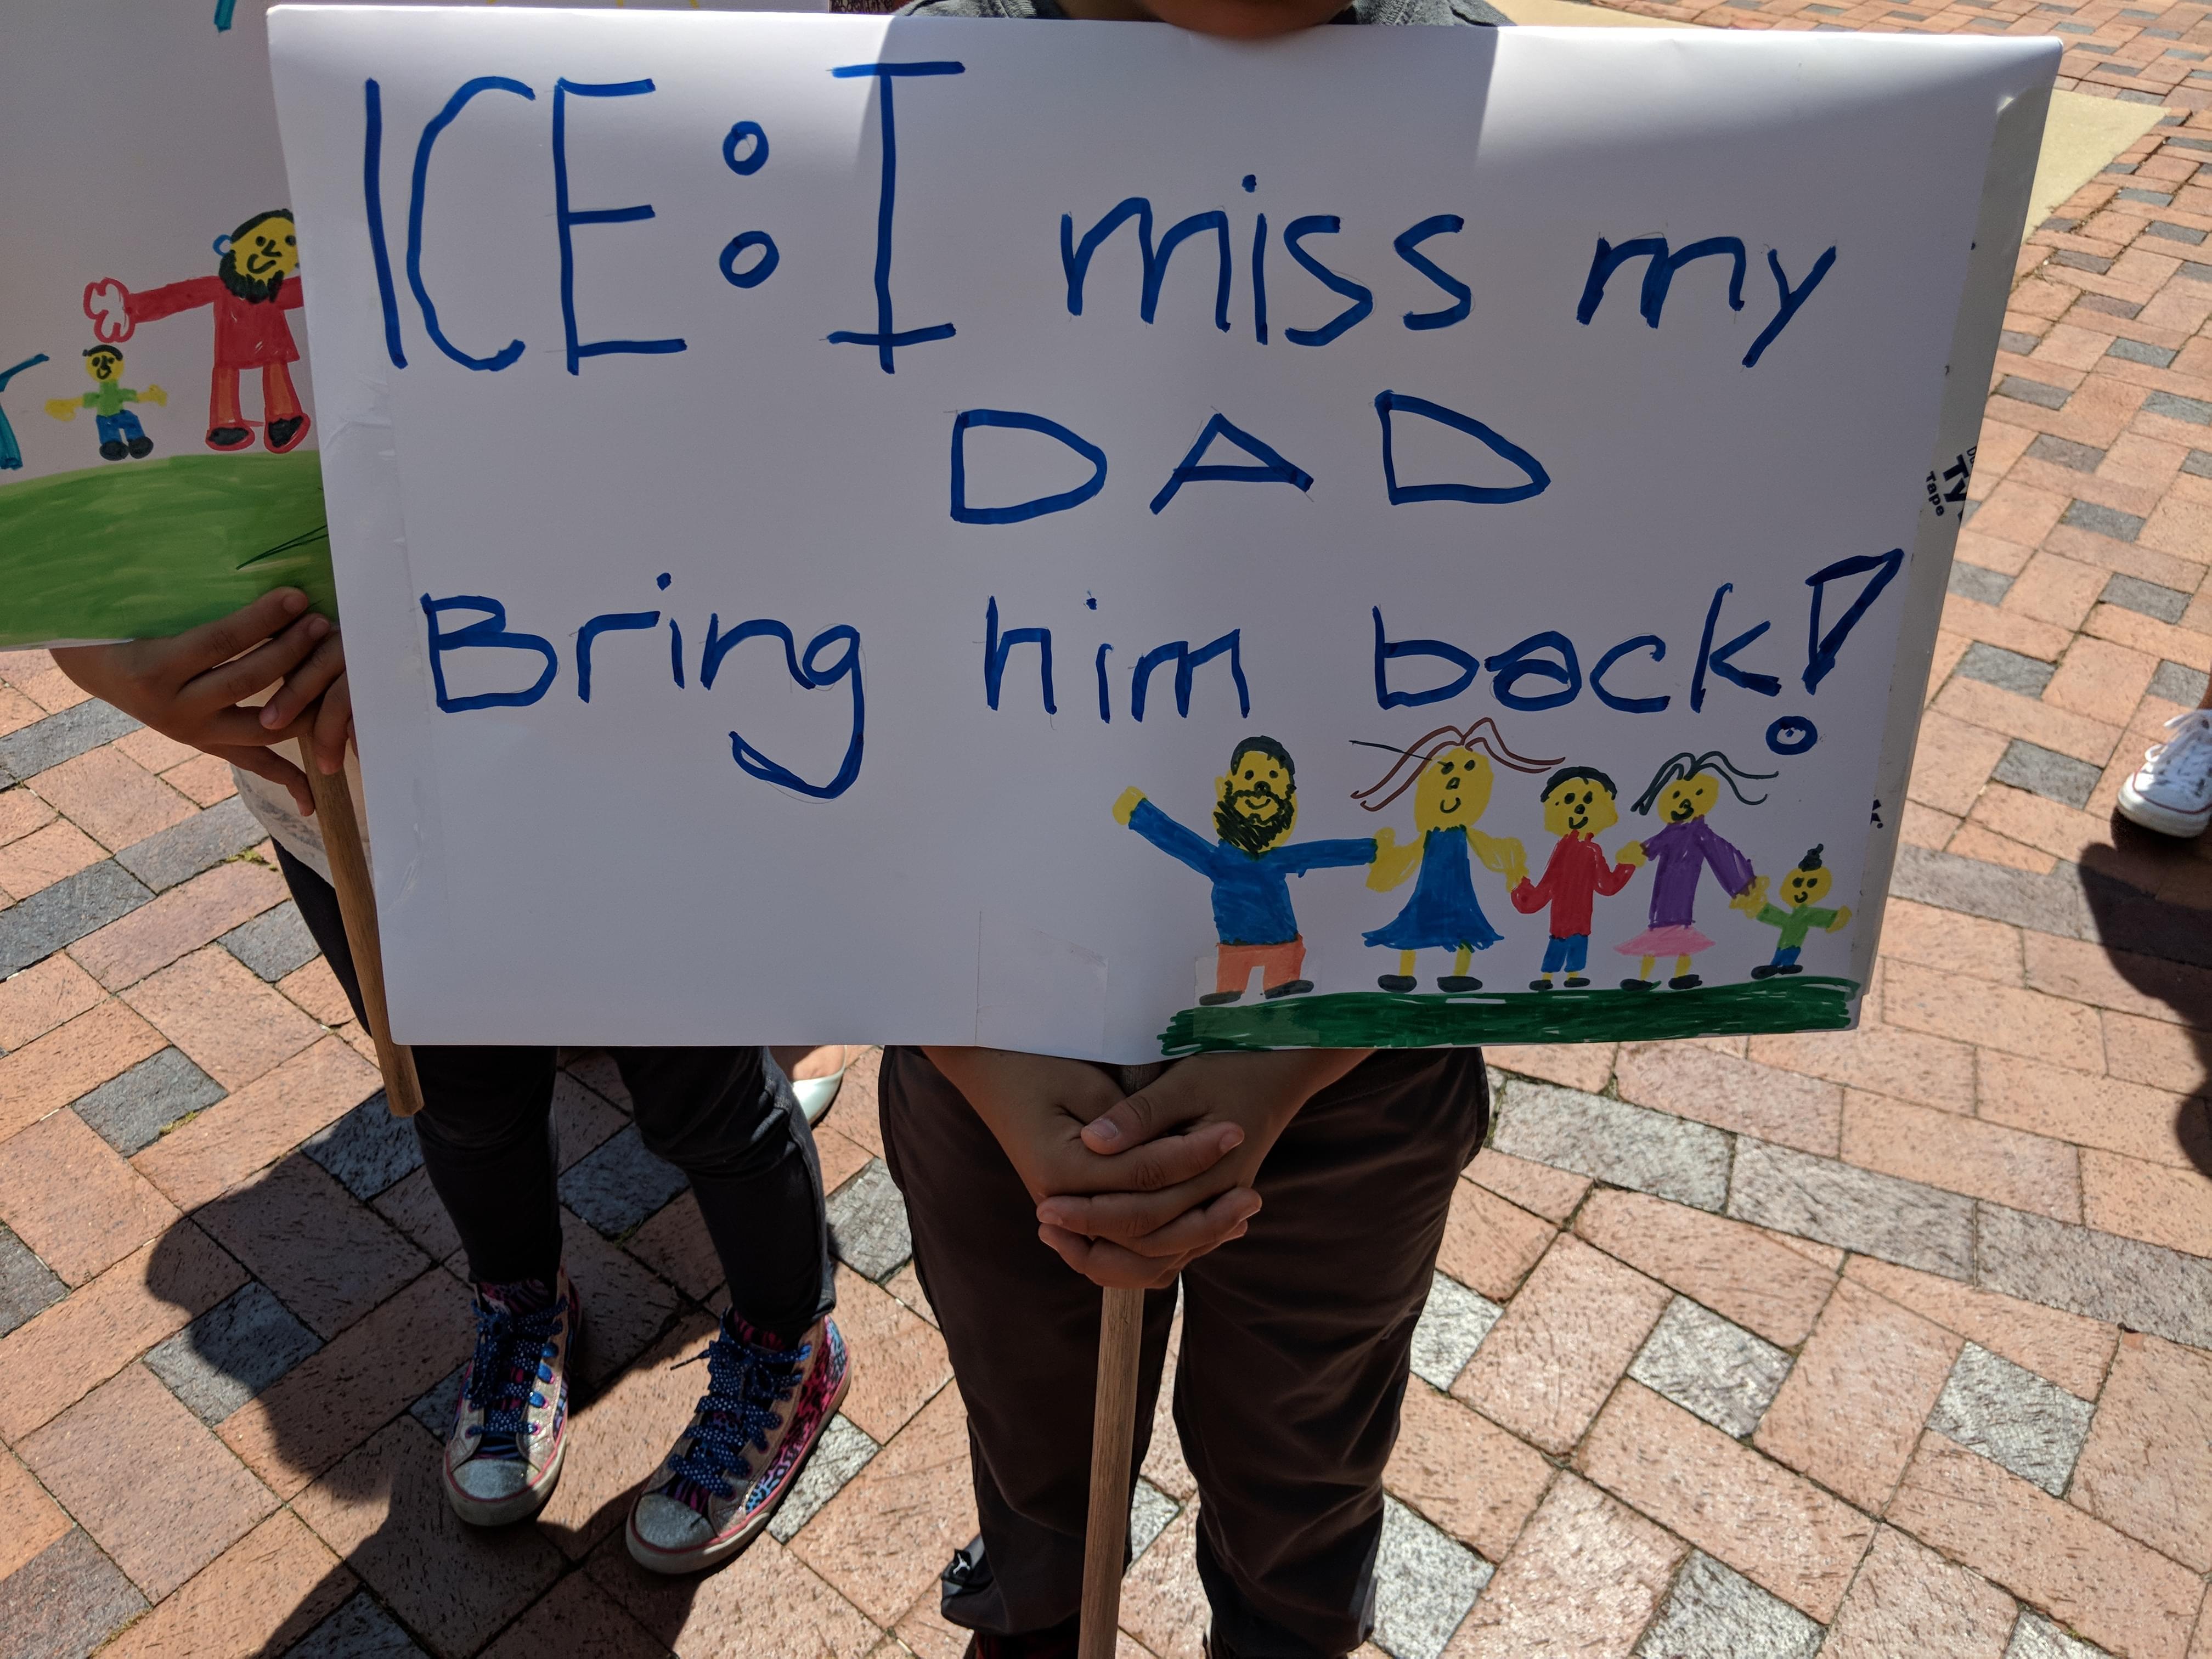 ICE: I miss my
DAD
Bring him back!
Tape